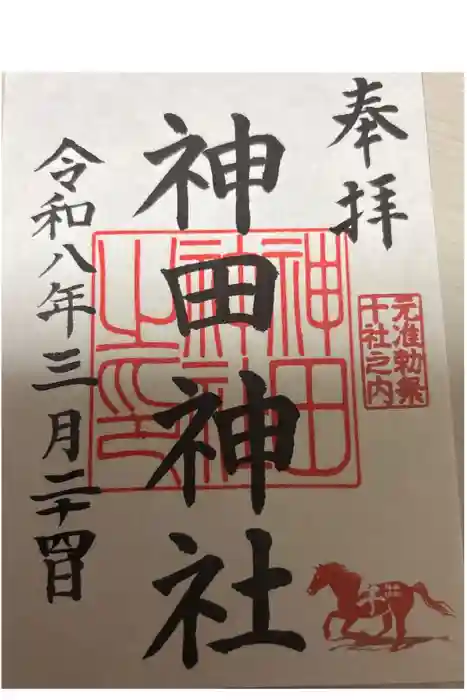 奉拝
元准勅祭
十社之内
神田神社
神田
神社
之印
令和八年三月二十四日